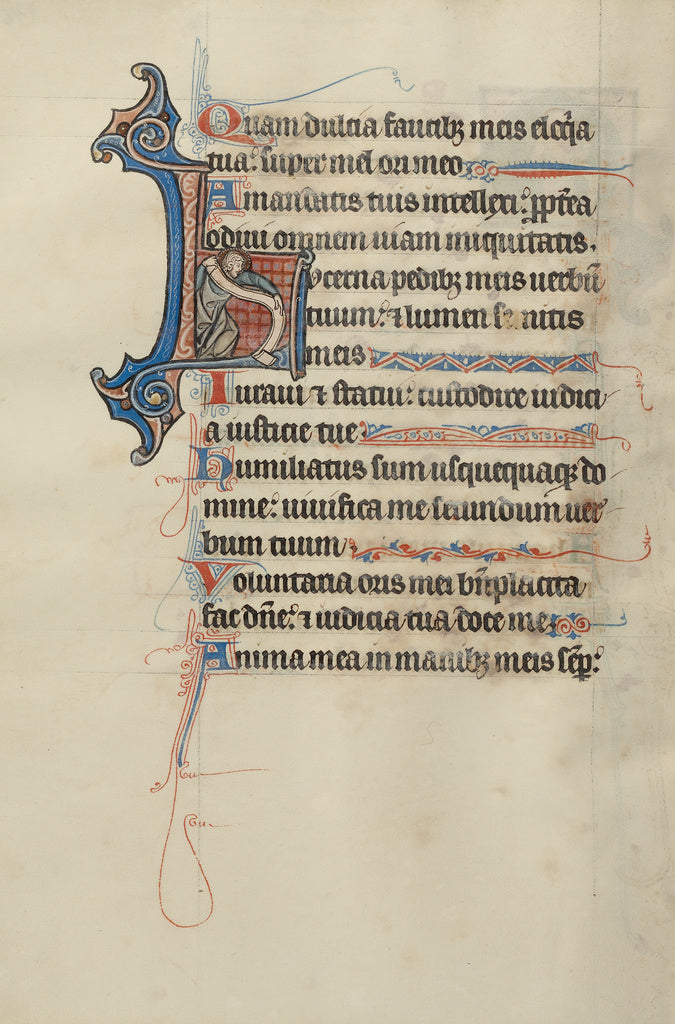 Quam dulcia faucibꝫ meis eloq̄a
tua: super mel ori meo
A mandatis tuis intellexi: ꝓpt̄ea
odiui omnem uiam iniquitatis.
Lucerna pedibꝫ meis uerbū
tuum: ⁊ lumen semitis
meis
Iuraui ⁊ statui: custodire iudici
a iusticie tue
Humiliatus sum usquequaqꝫ do
mine: uiuifica me secundum uer
bum tuum
Voluntaria oris mei bn̄placita
fac dn̄e: ⁊ iudicia tua doce me
Anima mea in manibꝫ meis semꝑ: